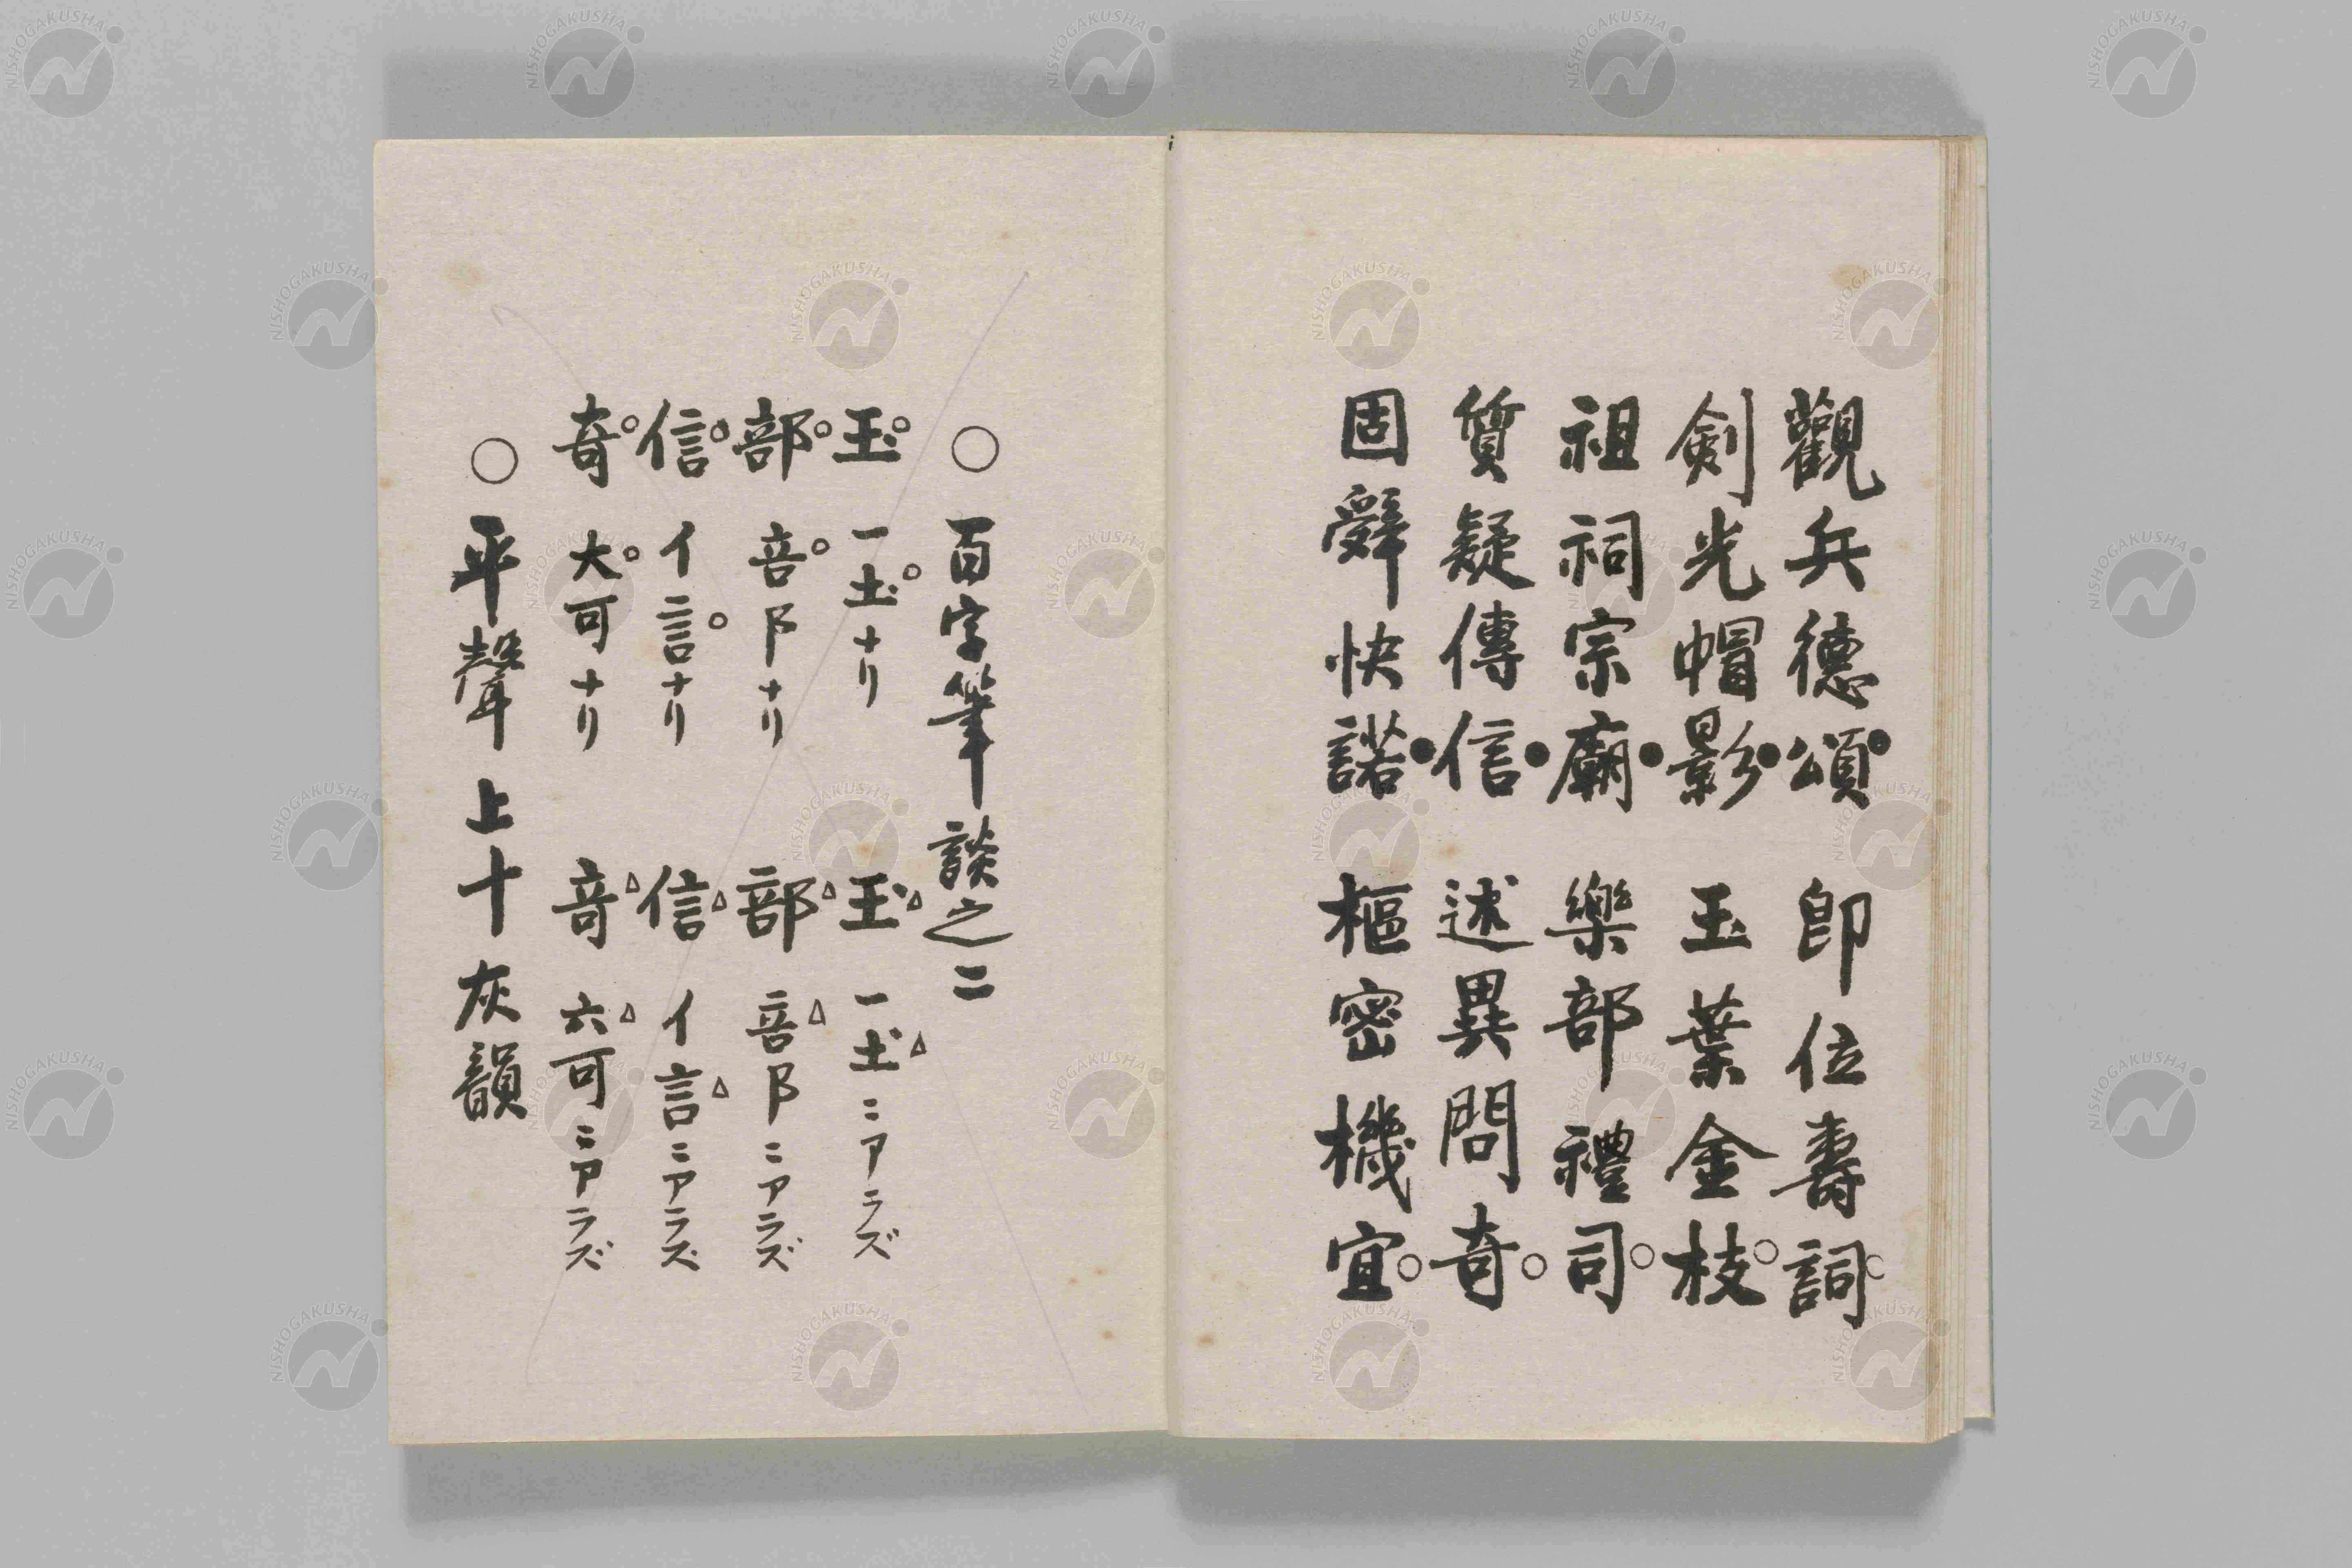 觀兵德頌● 即位壽詞○
劍光帽影● 玉葉金枝○
祖祠宗廟● 樂部禮司○
質疑傳信● 述異問奇○
固辭快諾● 樞密機宜○
○百字筆談之二
玉○ 一土○ナリ 玉△ 一土△ニアラズ
部○ 咅○阝ナリ 部△ 咅△阝ニアラズ
信○ イ言○ナリ 信△ イ言△ニアラズ
奇○ 大○可ナリ 竒△ 六△可ニアラズ
○平聲上十灰韻
NISHOGAKUSHA